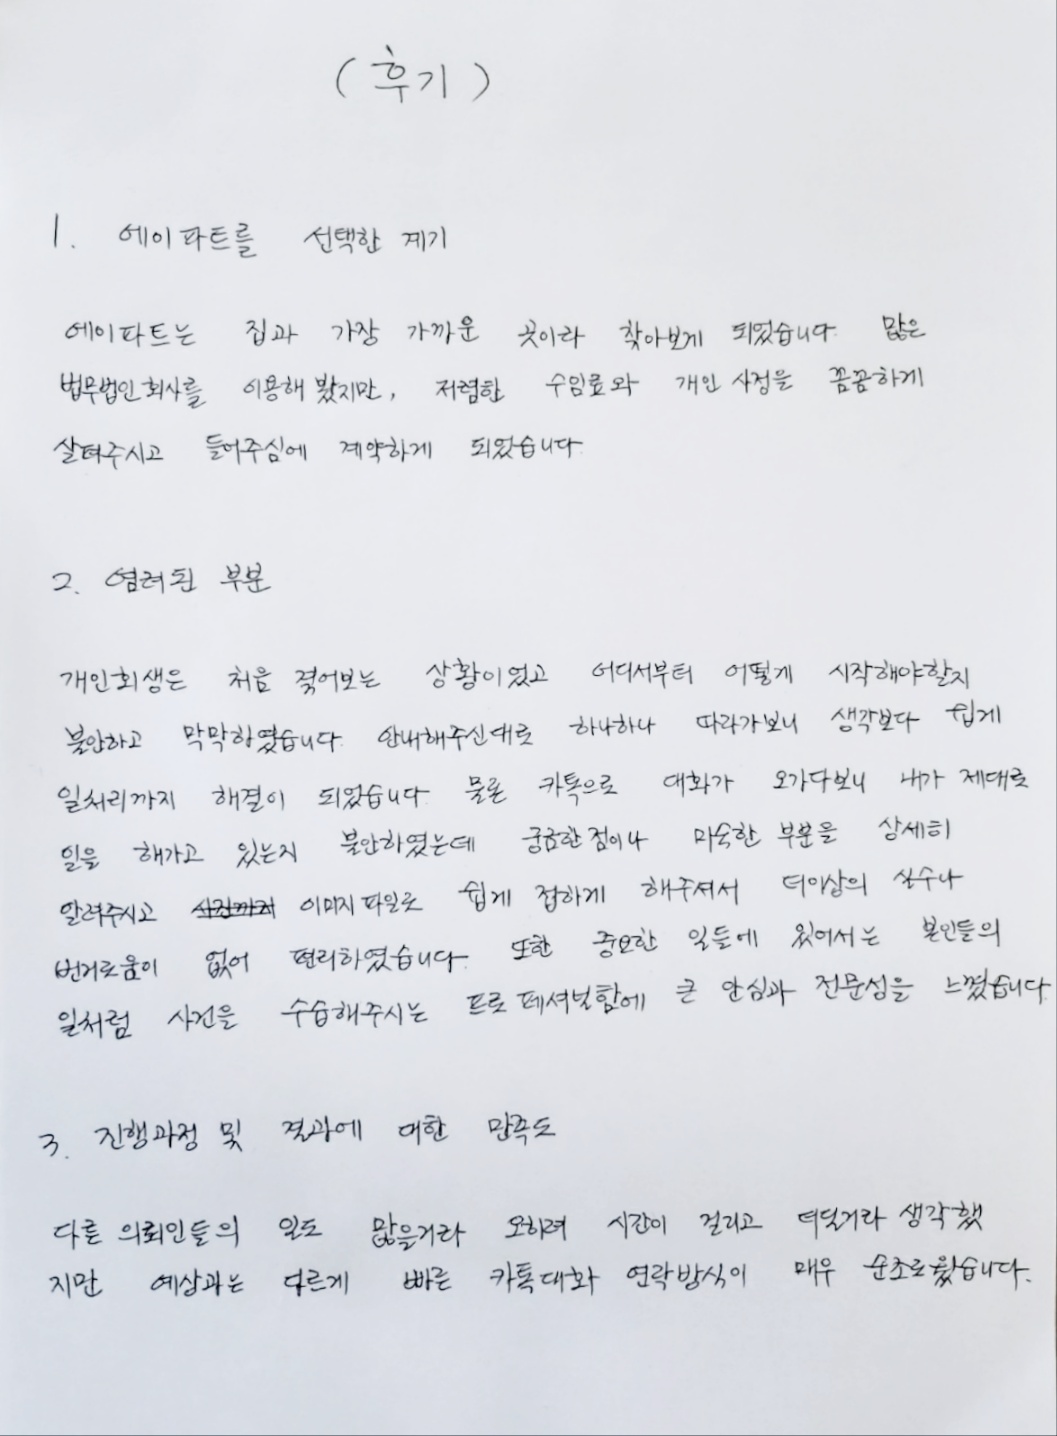 (후기)
1. 에이파트를 선택한 계기
에이파트는 집과 가장 가까운 곳이라 찾아보게 되었습니다. 많은
법무법인회사를 이용해 봤지만, 저렴한 수임료와 개인사정을 꼼꼼하게
살펴주시고 들어주심에 계약하게 되었습니다.
2. 염려된 부분
개인회생은 처음 겪어보는 상황이었고 어디서부터 어떻게 시작해야할지
불안하고 막막하였습니다. 안내해주신대로 하나하나 따라가보니 생각보다 쉽게
일처리까지 해결이 되었습니다. 물론 카톡으로 대화가 오가다보니 내가 제대로
일을 해가고 있는지 불안하였는데 궁금한점이나 미숙한 부분을 상세히
알려주시고 이미지파일로 쉽게 접하게 해주셔서 더이상의 실수나
번거로움이 없어 편리하였습니다. 또한 중요한 일들에 있어서는 본인들의
일처럼 사건을 수습해주시는 프로페셔널함에 큰 안심과 전문성을 느꼈습니다.
3. 진행과정 및 결과에 대한 만족도
다른 의뢰인들의 일도 많을거라 오히려 시간이 걸리고 더딜거라 생각했
지만 예상과는 다르게 빠른 카톡대화 연락방식이 매우 순조로웠습니다.